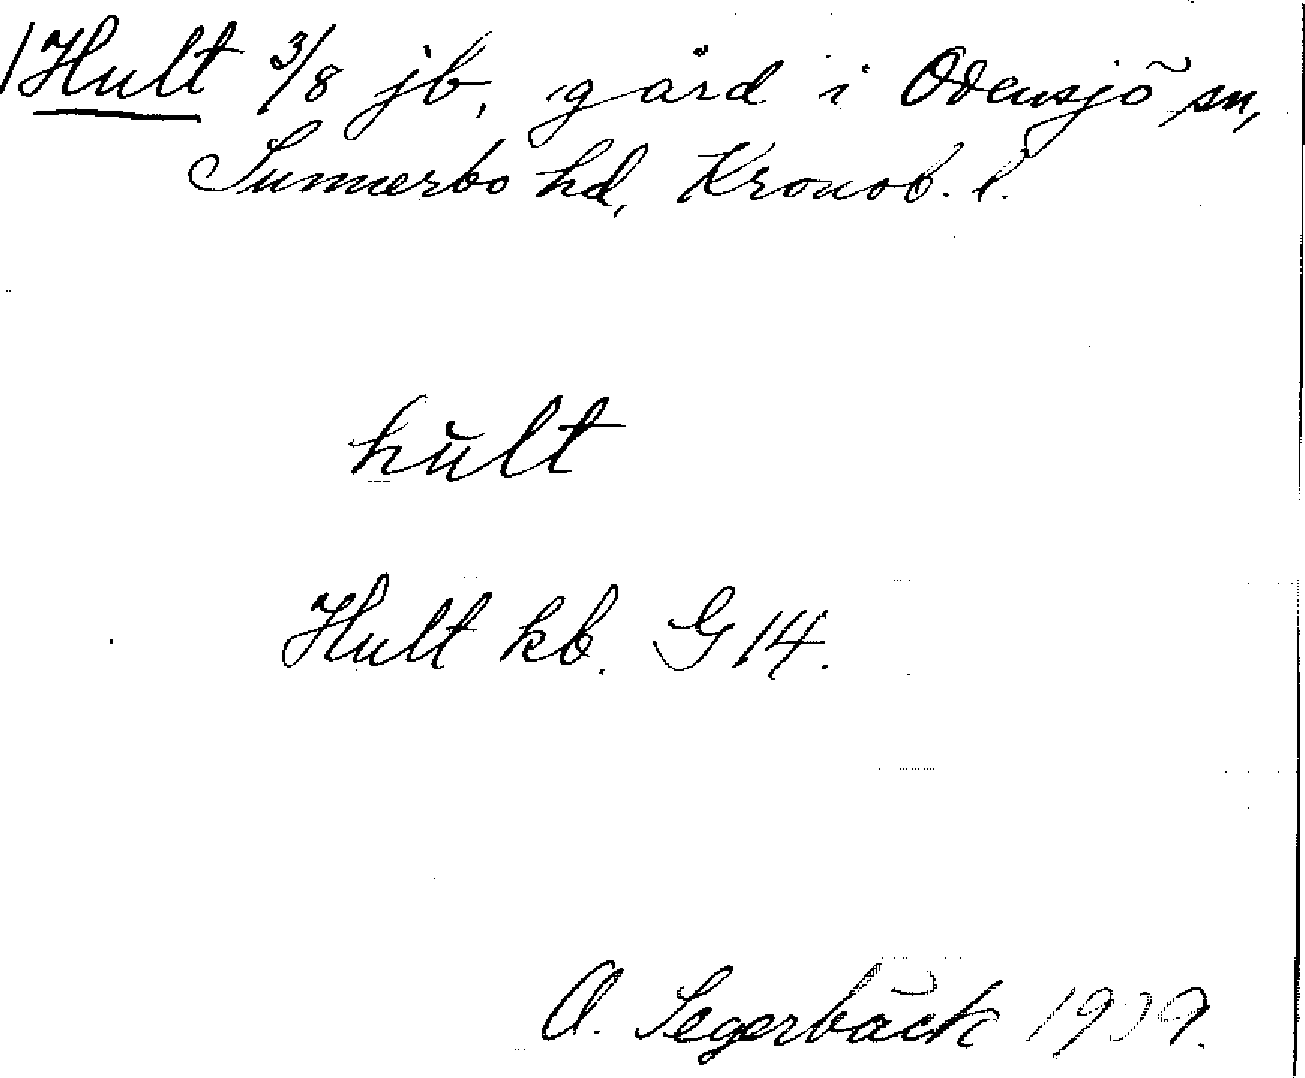 1 Hult 3/8 jb, gård i Odensjö sn,
Sunnerbo hd, Kronob. l.
hult
Hult kb. G 14.
A. Segerbäck 1939.